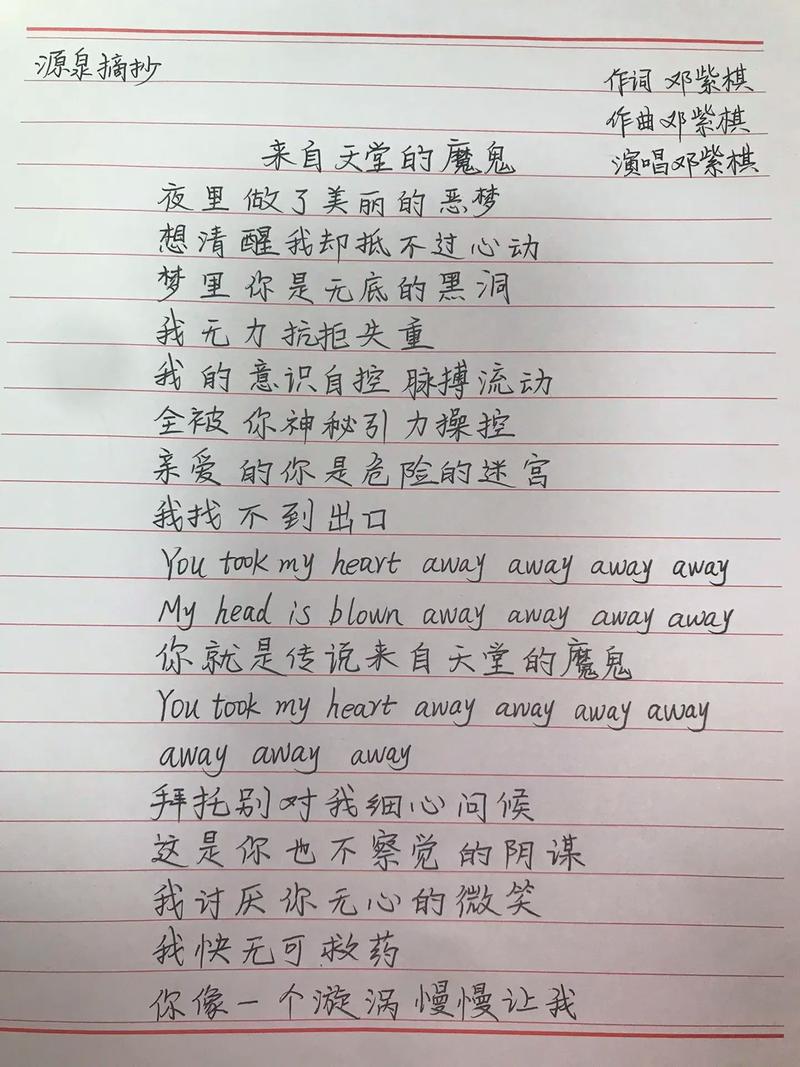 源泉摘抄
作词 邓紫棋
作曲邓紫棋
演唱邓紫棋
来自天堂的魔鬼
夜里做了美丽的恶梦
想清醒我却抵不过心动
梦里你是无底的黑洞
我无力抗拒失重
我的意识自控脉搏流动
全被你神秘引力操控
亲爱的你是危险的迷宫
我找不到出口
You took my heart away away away away
My head is blown away away away away
你就是传说来自天堂的魔鬼
You took my heart away away away away
away away away
拜托别对我细心问候
这是你也不察觉的阴谋
我讨厌你无心的微笑
我快无可救药
你像一个漩涡慢慢让我